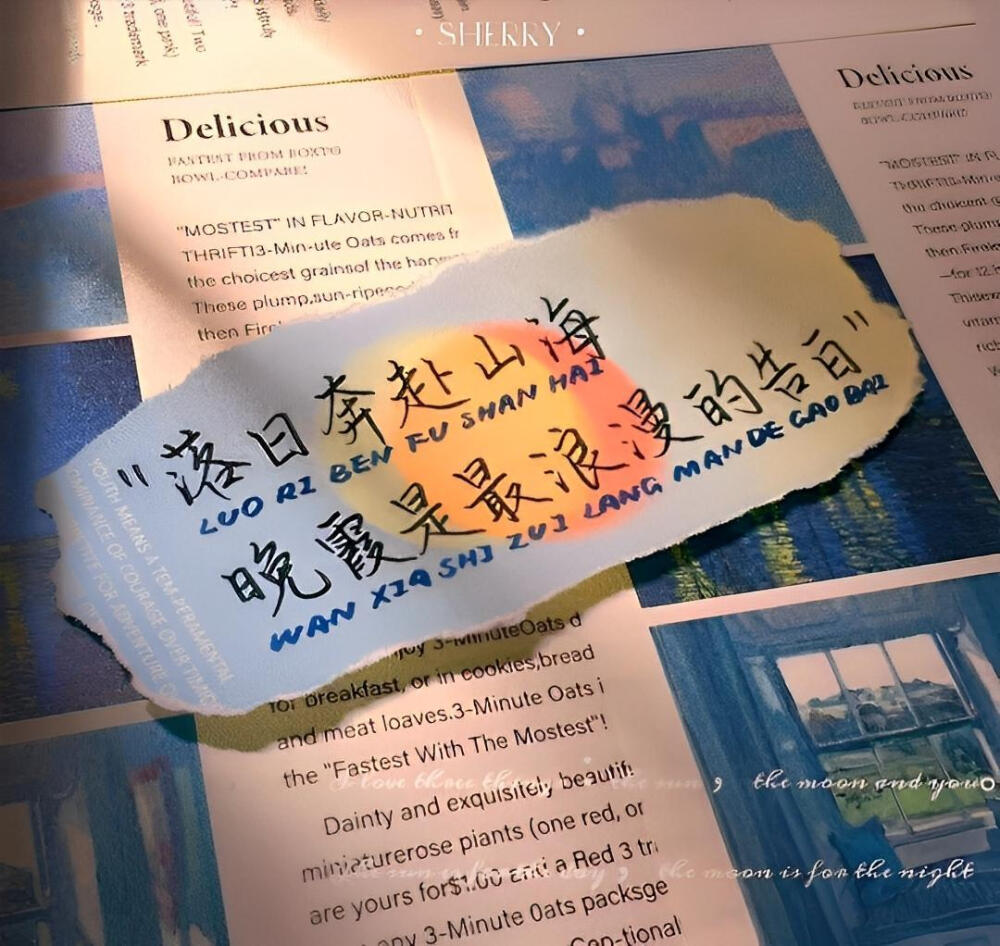 • SHERRY •
Delicious
FASTEST FROM BOXTO
BOWL-COMPARE!
"MOSTEST" IN FLAVOR-NUTRIT
THRIFT!3-Min-ute Oats comes fr
the choicest grainsof the
These plump,sun-ripened
then
Delicious
"MOSTEST" IN FL
THRIFT!3-Min-u
the choicest g
These plump
then
—for 12
vitam
rich
"落日奔赴山海
LUO RI BEN FU SHAN HAI
晚霞是最浪漫的告白"
WAN XIA SHI ZUI LANG MAN DE GAO BAI
YOUTH MEANS A TEMPERAMENTAL
OMINANCE OF COURAGE OVER TIMID
FOR ADVENTURE
njoy 3-MinuteOats d
for breakfast, or in cookies,bread
and meat loaves.3-Minute Oats i
the "Fastest With The Mostest"!
Dainty and exquisitely beautif
miniaturerose piants (one red, or
are yours for$1.00 and a Red 3 tr
any 3-Minute Oats packsge
Con-tional
I love three things the sun , the moon and you
the sun is for the day , the moon is for the night